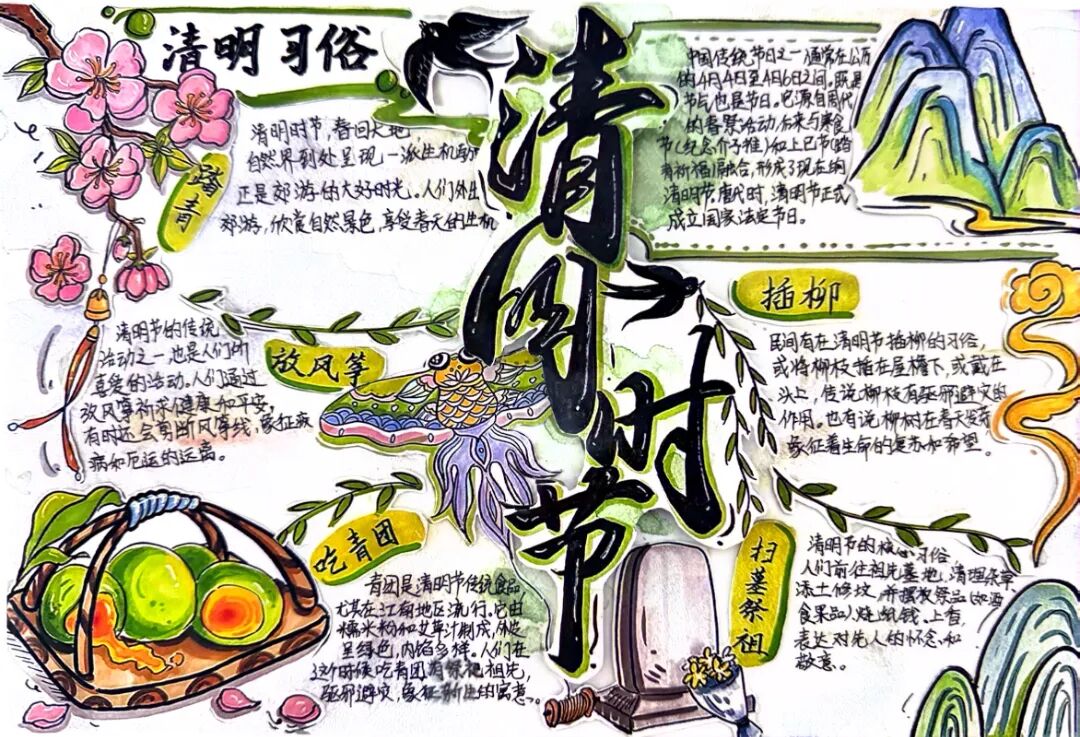 清明习俗
清明时节
踏青
清明时节,春回大地,
自然界到处呈现一派生机
正是郊游的大好时光。人们外出
郊游,欣赏自然景色,享受春天的生机
中国传统节日之一通常在公历
的4月4日至4月6日之间,既是
节气也是节日。它源自周代
的春祭活动,后来与寒食
节(纪念介子推)和上巳节(踏
青祈福)融合,形成了现在的
清明节。唐代时,清明节正式
成立国家法定节日。
放风筝
清明节的传统
活动之一,也是人们的
喜爱的活动。人们通过
放风筝祈求健康和平安,
有时还会剪断风筝线,象征疾
病和厄运的远离。
插柳
民间有在清明节插柳的习俗,
或将柳枝插在屋檐下,或戴在
头上,传说柳枝有驱邪避灾的
作用。也有说柳树在春天发芽
象征着生命的复苏和希望。
吃青团
青团是清明节传统食品,
尤其在江南地区流行。它由
糯米粉和艾草汁制成,外皮
呈绿色,内馅多样。人们在
这个时候吃青团,有祭祀祖先,
驱邪避灾,象征新生的寓意。
扫墓祭祖
清明节的核心习俗
人们前往祖先墓地,清理杂草
添土修坟,并摆放祭品(如酒
食果品)、烧纸钱、上香,
表达对先人的怀念和
敬意。